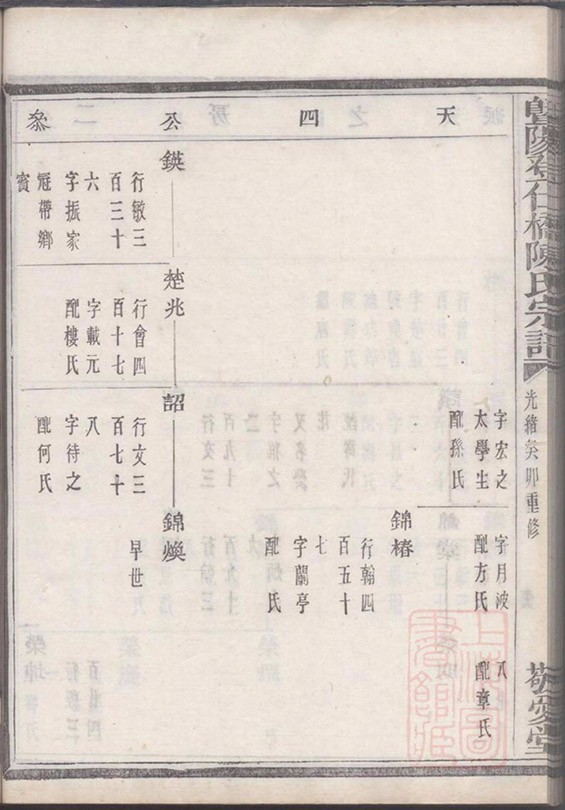 暨陽登仕橋陳氏宗譜
光緒癸卯重修
敬愛堂
天四公叅
字宏之
太學生
配孫氏
字月波
配方氏
八
配章氏
錦椿
行翰四
百五十
七
字蘭亭
配氏
鍈
行敏三
百三十
六
字振家
冠帶鄉
賓
楚兆
行會四
百十七
字載元
配樓氏
詔
行文三
百七十
八
字待之
配何氏
錦煥
早世
上海圖書館藏